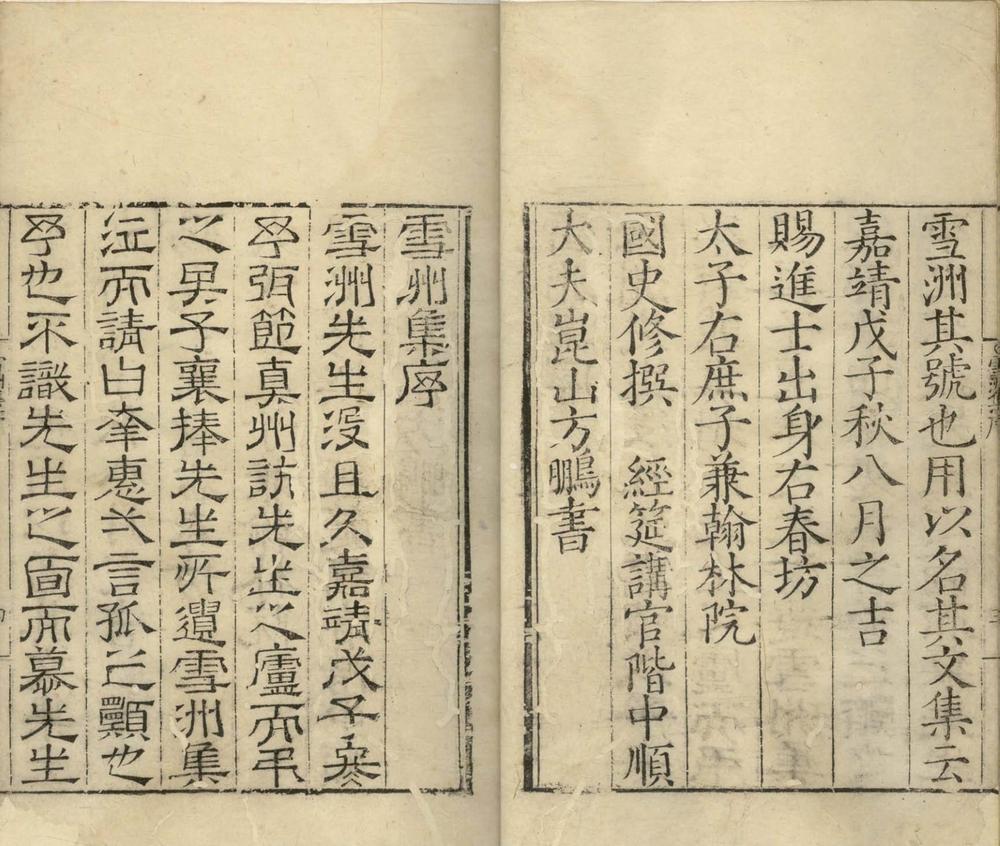 雪洲其號也用以名其文集云
嘉靖戊子秋八月之吉
賜進士出身右春坊
太子右庶子兼翰林院
國史修撰　經筵講官階中順
大夫崑山方鵬書
雪州集序
雪洲先生沒且久嘉靖戊子冬
予弭節真州訪先生之廬而弔
之男子襄捧先生所遺雪洲集
泣而請曰幸惠弌言孤之顯也
予也不識先生之面而慕先生